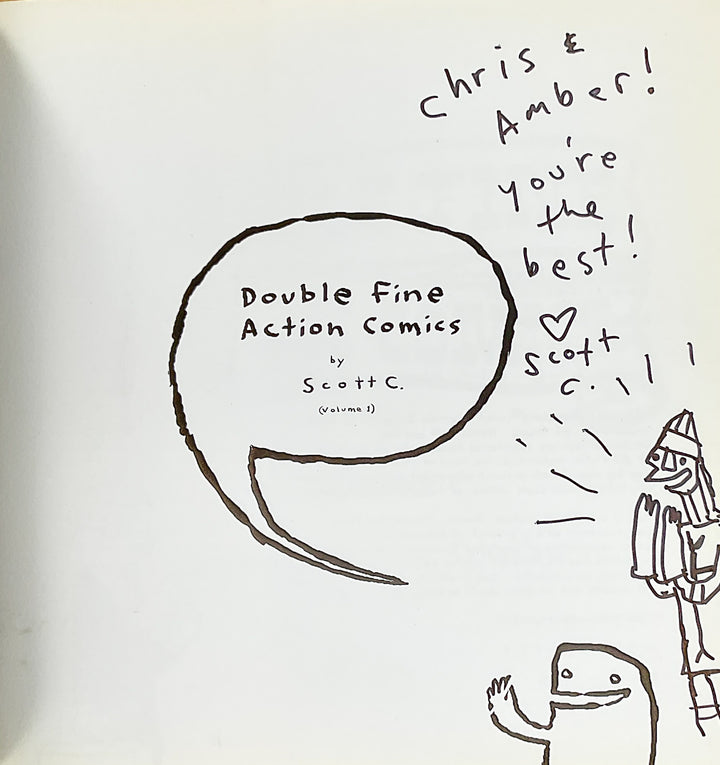 Chris &
Amber!
you're
the
best!
♡
Scott
C.
Double Fine
Action Comics
by
Scott C.
(Volume 1)